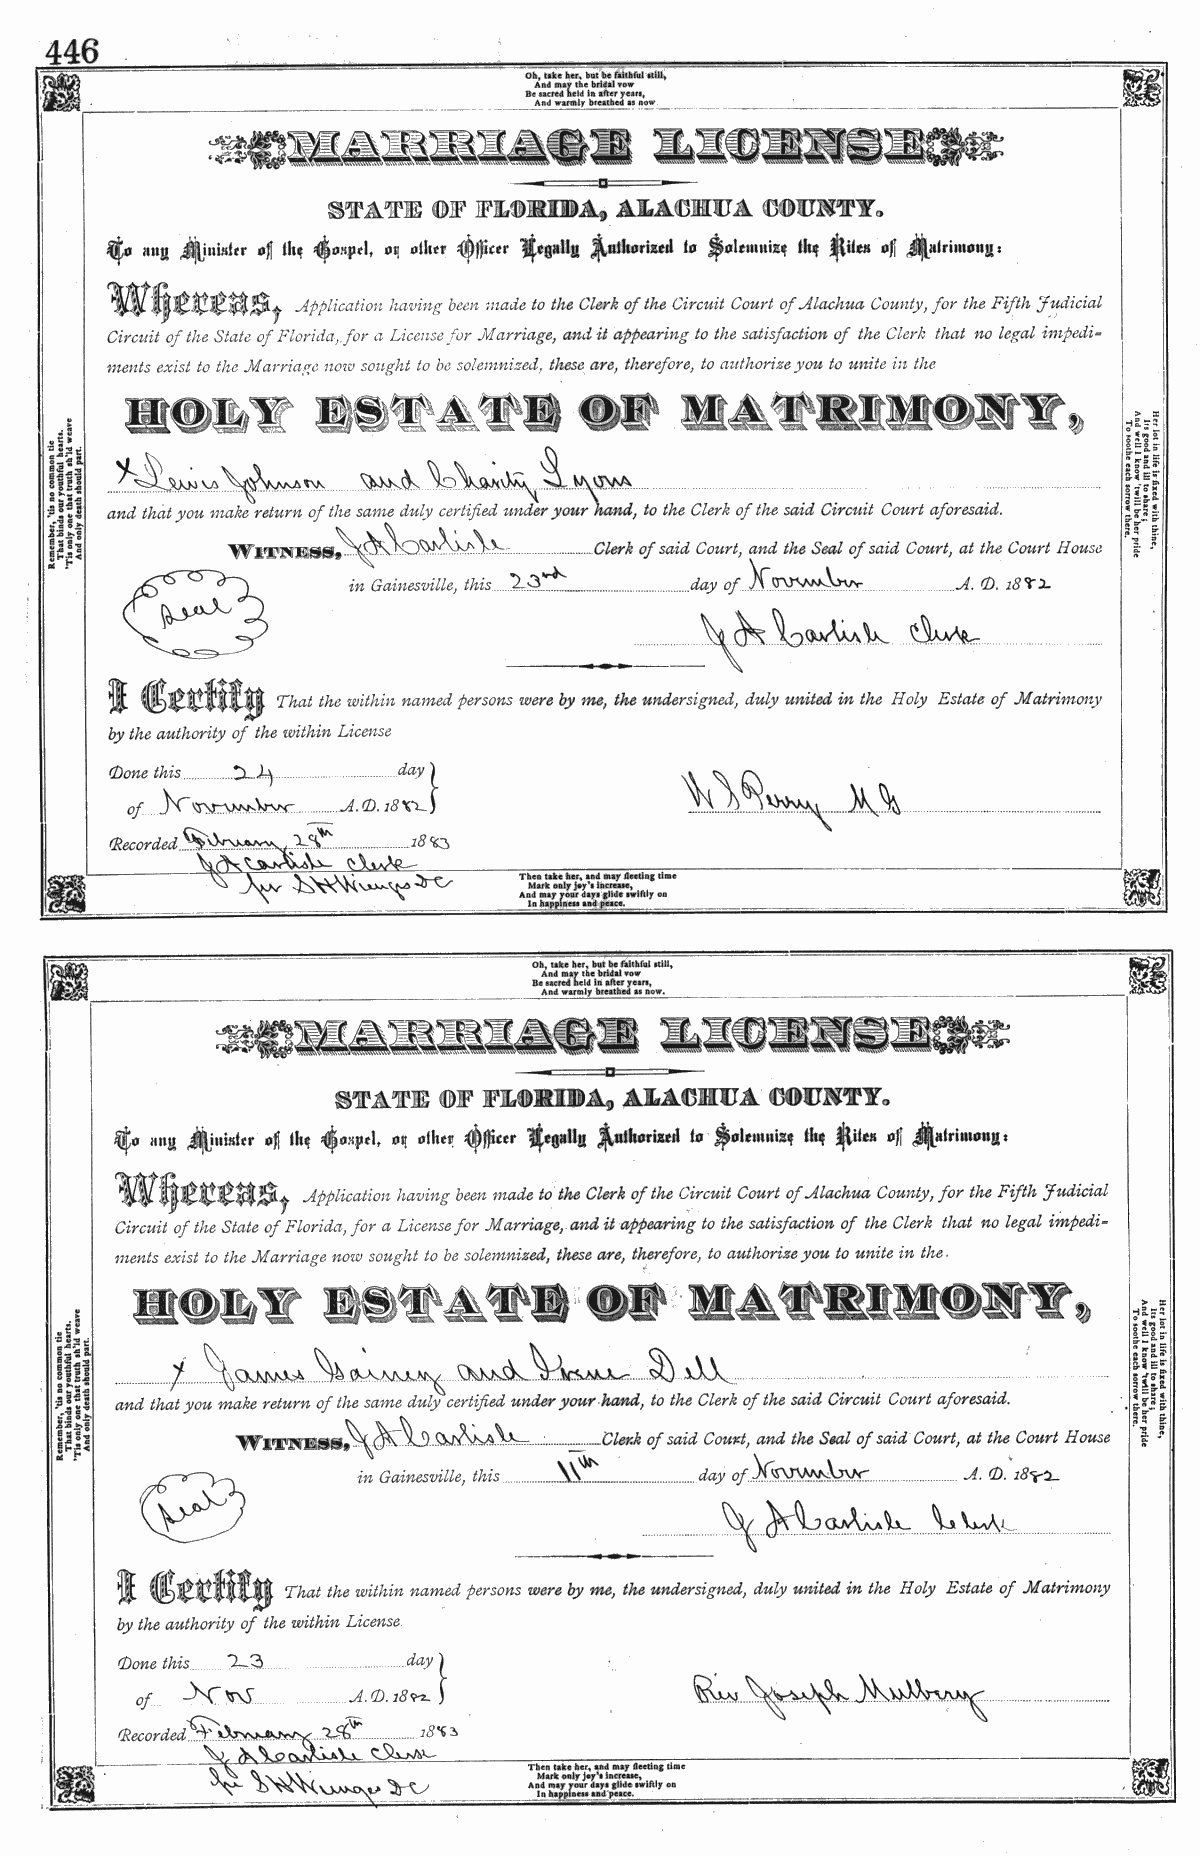 446
Oh, take her, but be faithful still,
And may the bridal vow
Be sacred held in after years,
And warmly breathed as now
MARRIAGE LICENSE
STATE OF FLORIDA, ALACHUA COUNTY.
To any Minister of the Gospel, or other Officer Legally Authorized to Solemnize the Rites of Matrimony:
Whereas, Application having been made to the Clerk of the Circuit Court of Alachua County, for the Fifth Judicial
Circuit of the State of Florida, for a License for Marriage, and it appearing to the satisfaction of the Clerk that no legal impedi-
ments exist to the Marriage now sought to be solemnized, these are, therefore, to authorize you to unite in the
HOLY ESTATE OF MATRIMONY,
x Lewis Johnson and Charity Lyons
and that you make return of the same duly certified under your hand, to the Clerk of the said Circuit Court aforesaid.
WITNESS, J A Carlisle Clerk of said Court, and the Seal of said Court, at the Court House
in Gainesville, this 23rd day of November A. D. 1882
Seal
J A Carlisle Clerk
I Certify That the within named persons were by me, the undersigned, duly united in the Holy Estate of Matrimony
by the authority of the within License
Done this 24 day
of November A.D. 1882
W S Perry M G
Recorded February 28th 1883
J A Carlisle Clerk
per S H Wienges DC
Remember, 'tis no common tie
That binds our youthful hearts,
'Tis only one that truth sh'ld weave
And only death should part.
Her lot in life is fixed with thine,
Its good and ill to share;
And well I know 'twill be her pride
To soothe each sorrow there.
Then take her, and may fleeting time
Mark only joy's increase,
And may your days glide swiftly on
In happiness and peace.
Oh, take her, but be faithful still,
And may the bridal vow
Be sacred held in after years,
And warmly breathed as now.
MARRIAGE LICENSE
STATE OF FLORIDA, ALACHUA COUNTY.
To any Minister of the Gospel, or other Officer Legally Authorized to Solemnize the Rites of Matrimony:
Whereas, Application having been made to the Clerk of the Circuit Court of Alachua County, for the Fifth Judicial
Circuit of the State of Florida, for a License for Marriage, and it appearing to the satisfaction of the Clerk that no legal impedi-
ments exist to the Marriage now sought to be solemnized, these are, therefore, to authorize you to unite in the
HOLY ESTATE OF MATRIMONY,
x James Gainey and Irene Dell
and that you make return of the same duly certified under your hand, to the Clerk of the said Circuit Court aforesaid.
WITNESS, J A Carlisle Clerk of said Court, and the Seal of said Court, at the Court House
in Gainesville, this 11th day of November A. D. 1882
Seal
J A Carlisle Clerk
I Certify That the within named persons were by me, the undersigned, duly united in the Holy Estate of Matrimony
by the authority of the within License
Done this 23 day
of Nov A.D. 1882
Rev Joseph Mulbery
Recorded February 28th 1883
J A Carlisle Clerk
per S H Wienges DC
Remember, 'tis no common tie
That binds our youthful hearts,
'Tis only one that truth sh'ld weave
And only death should part.
Her lot in life is fixed with thine,
Its good and ill to share;
And well I know 'twill be her pride
To soothe each sorrow there.
Then take her, and may fleeting time
Mark only joy's increase,
And may your days glide swiftly on
In happiness and peace.